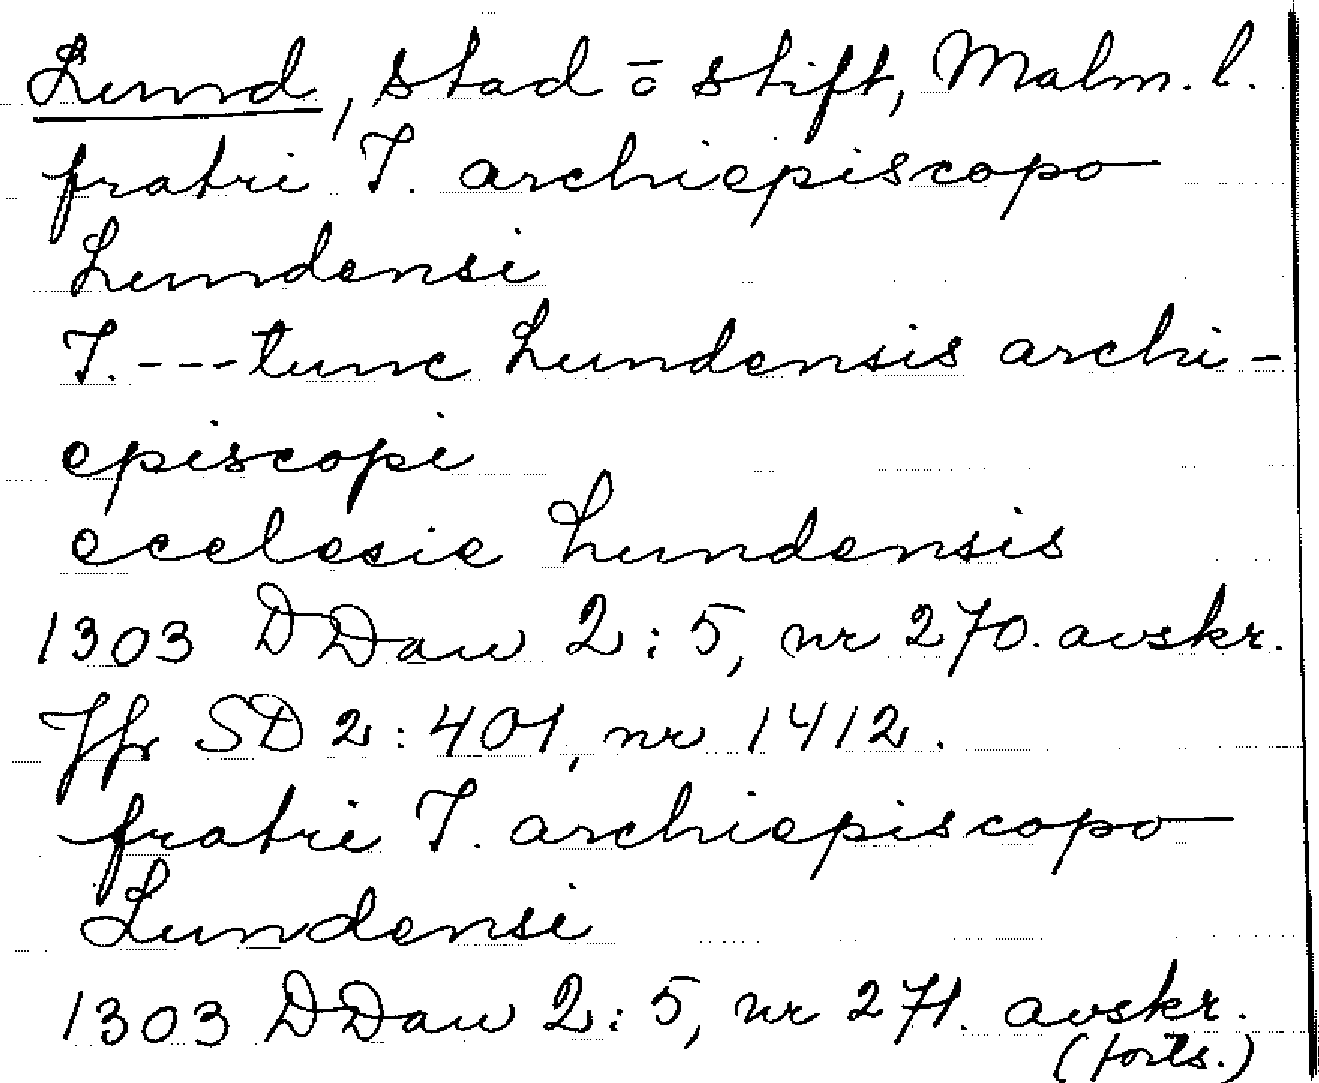 Lund, stad ō stift, Malm. l.
fratri J. archiepiscopo
Lundensi
J. --- tunc Lundensis archi-
episcopi
ecclesie Lundensis
1303 DDan 2:5, nr 270. avskr.
Jfr SD 2:401, nr 1412.
fratri J. archiepiscopo
Lundensi
1303 DDan 2:5, nr 271. avskr.
(forts.)